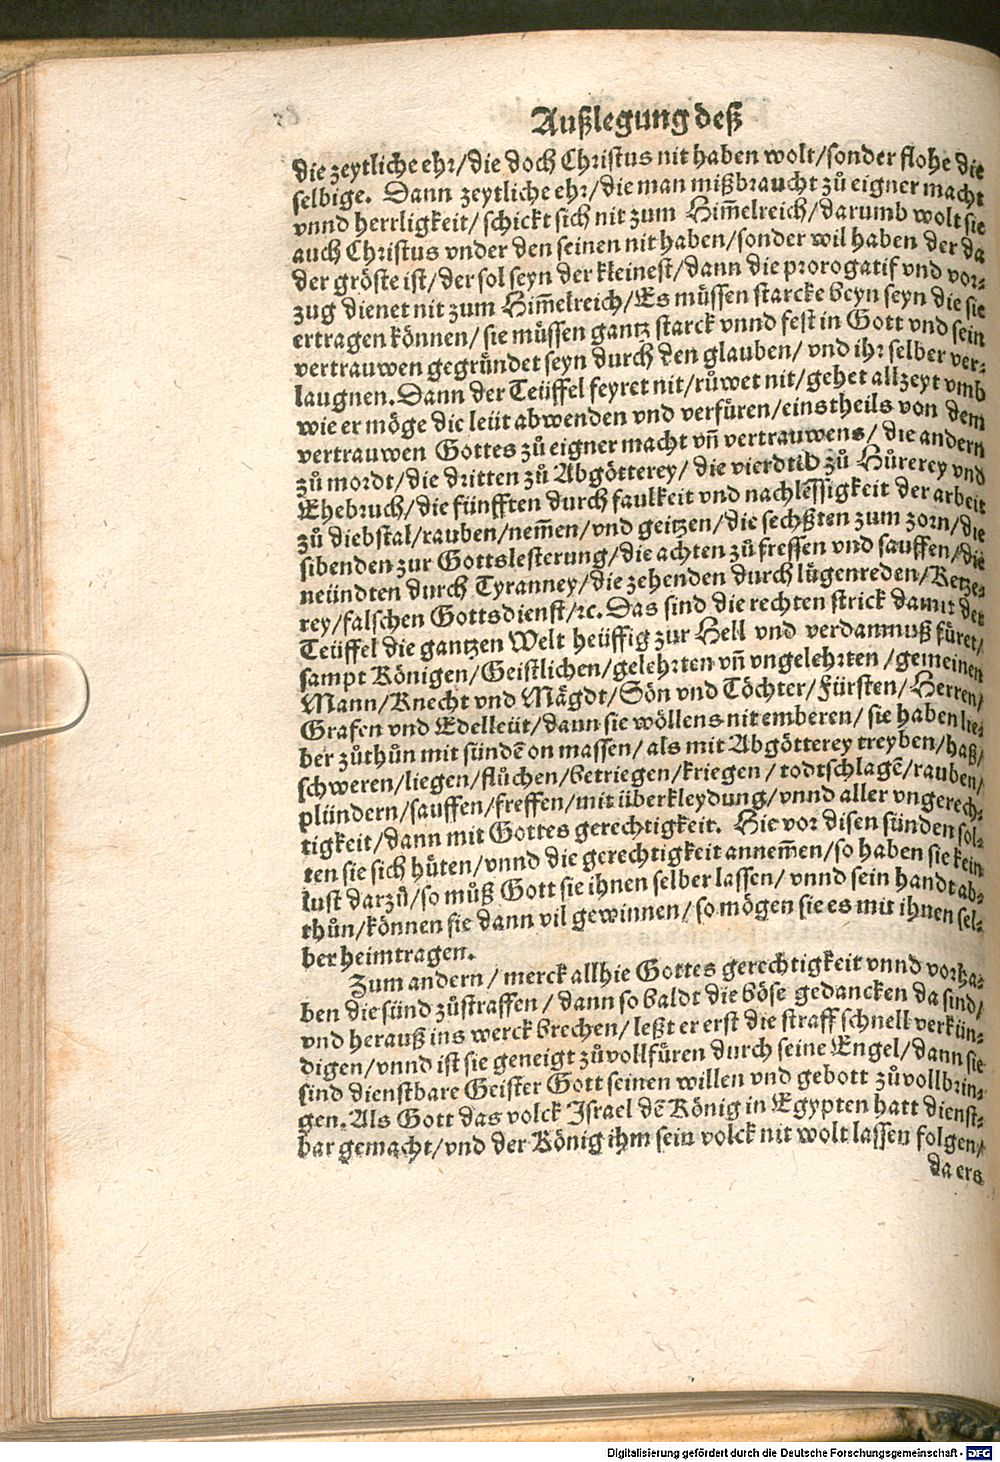 Außlegung deß
die zeytliche ehr/die doch Christus nit haben wolt/sonder flohe die
selbige. Dann zeytliche ehr/die man mißbraucht zů eigner macht
vnnd herrligkeit/schickt sich nit zum Him̄elreich/darumb wolt sie
auch Christus vnder den seinen nit haben/sonder wil haben der da
der gröste ist/der sol seyn der kleinest/dann die prorogatif vnd vor-
zug dienet nit zum Him̄elreich/Es müssen starcke beyn seyn die sie
ertragen können/sie müssen gantz starck vnnd fest in Gott vnd sein
vertrauwen gegründet seyn durch den glauben/vnd ihr selber ver-
laugnen. Dann der Teüffel feyret nit/růwet nit/gehet allzeyt vmb
wie er möge die leüt abwenden vnd verfüren/einstheils von dem
vertrauwen Gottes zů eigner macht vñ vertrauwens/die andern
zů mordt/die dritten zů Abgötterey/die vierdtē zů Hůrerey vnd
Ehebruch/die fünfften durch faulkeit vnd nachlessigkeit der arbeit
zů diebstal/rauben/nem̄en/vnd geitzen/die sechßten zum zorn/die
sibenden zur Gottslesterung/die achten zů fressen vnd sauffen/die
neündten durch Tyranney/die zehenden durch lügenreden/Ketze-
rey/falschen Gottsdienst/ꝛc. Das sind die rechten strick damit der
Teüffel die gantzen Welt heüffig zur Hell vnd verdamnuß füret/
sampt Königen/Geistlichen/gelehrten vñ vngelehrten/gemeinen
Mann/Knecht vnd Mägdt/Sön vnd Töchter/Fürsten/Herren/
Grafen vnd Edelleüt/dann sie wöllens nit emberen/sie haben lie-
ber zůthůn mit sündē on massen/als mit Abgötterey treyben/haß/
schweren/liegen/flůchen/betriegen/kriegen/todtschlagē/rauben/
plündern/sauffen/fressen/mit überkleydung/vnnd aller vngerech-
tigkeit/dann mit Gottes gerechtigkeit. Hie vor disen sünden sol-
ten sie sich hüten/vnnd die gerechtigkeit annem̄en/so haben sie kein
lust darzů/so můß Gott sie ihnen selber lassen/vnnd sein handt ab-
thůn/können sie dann vil gewinnen/so mögen sie es mit ihnen sel-
ber heimtragen.
Zum andern/merck allhie Gottes gerechtigkeit vnnd vorha-
ben die sünd zůstraffen/dann so baldt die böse gedancken da sind/
vnd herauß ins werck brechen/leßt er erst die straff schnell verkün-
digen/vnnd ist sie geneigt zůvollfüren durch seine Engel/dann sie
sind dienstbare Geister Gott seinen willen vnd gebott zůvollbrin-
gen. Als Gott das volck Israel dē König in Egypten hatt dienst-
bar gemacht/vnd der König ihm sein volck nit wolt lassen folgen/
da ers
Digitalisierung gefördert durch die Deutsche Forschungsgemeinschaft - DFG